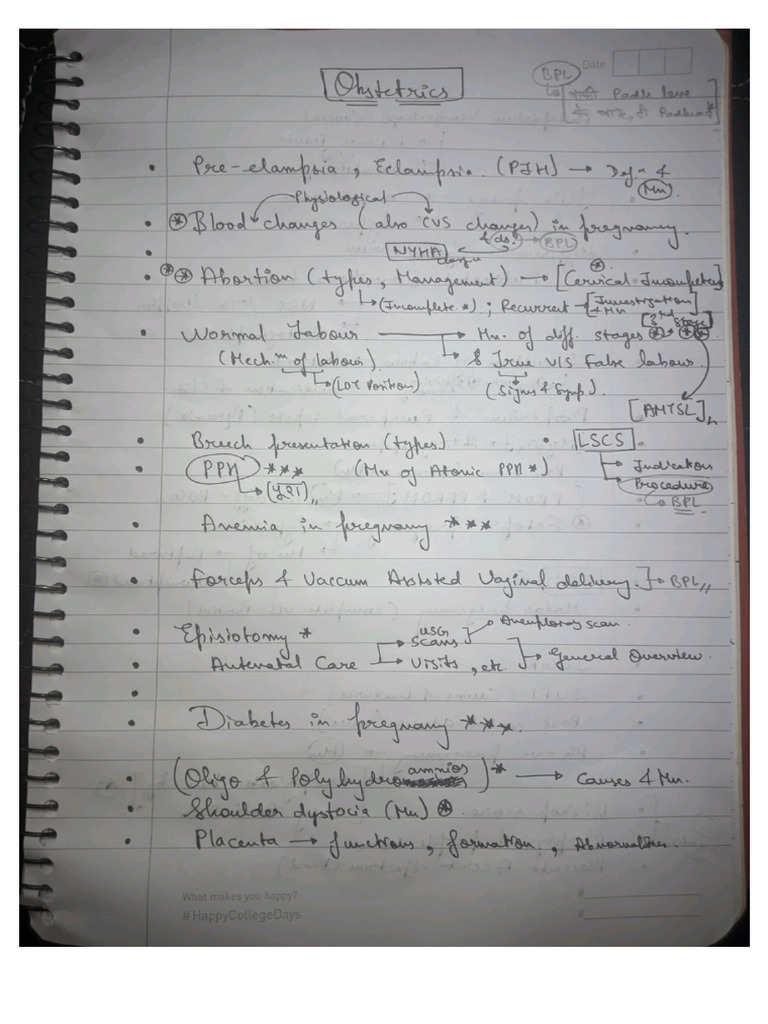 Obstetrics
BPL Date
बाकी Padh lene
के बाद, ही Padhna*
• Pre-elampsia, Eclampsia (PIH) → Defn &
Mn
Physiological
• ⊛ Blood changes (also CVS changes) in pregnancy.
NYHA & ds. → BPL
• ⊛⊛ Abortion (types, Management) → [Cervical Incompetence]
(Incomplete *) ; Recurrent → [Investigation
& Mn
• Normal Labour → Mn. of diff. stages [3rd stage]
(Mechm of labour) → & True v/s False labour.
(LOT Position) (Signs & Symp).
[AMTSL]
• Breech presentation (types) • LSCS
• PPH *** (Mn of Atonic PPH *) → Indication
Procedure
→ BPL
• Anemia in pregnancy ***
• Forceps & Vaccum Assisted Vaginal delivery.] → BPL
• Episiotomy * USG Scans → Aneuploidy scan.
• Antenatal Care → Visits, etc → General Overview.
• Diabetes in pregnancy ***.
• (Oligo & Polyhydroamnios)* → Causes & Mn.
• Shoulder dystocia (Mn) ⊛.
• Placenta → functions, formation, Abnormalities.
What makes you happy? #
#HappyCollegeDays #